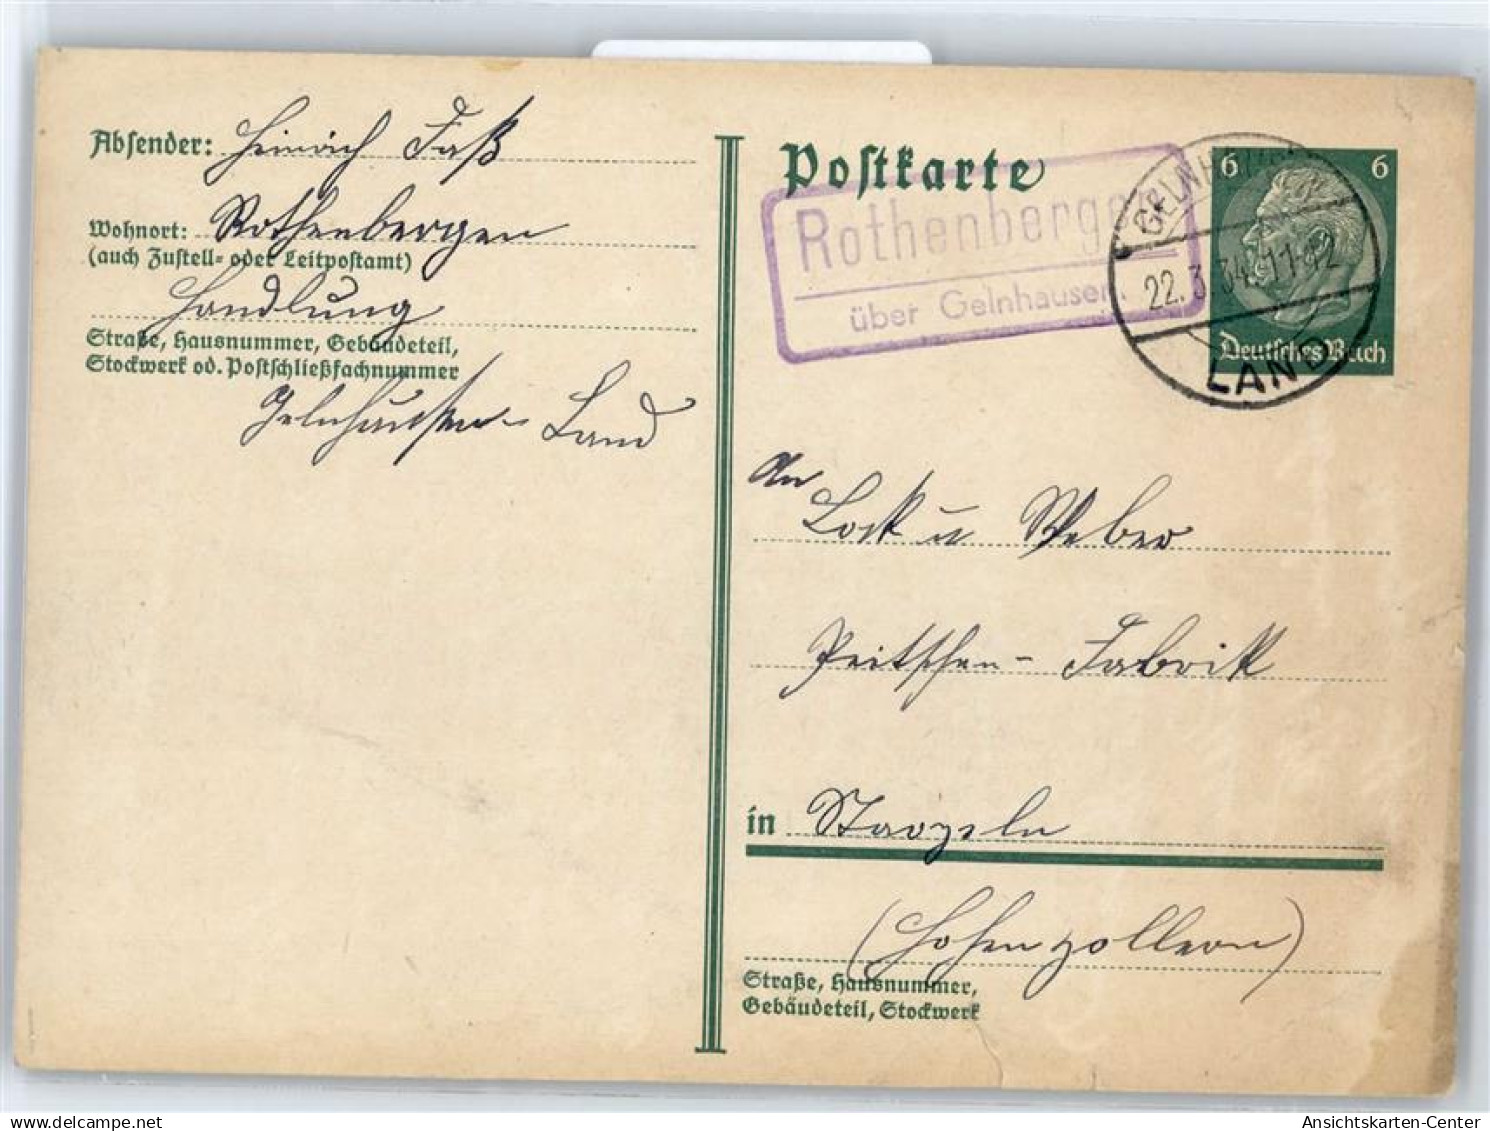 Absender: Heinrich Faß
Wohnort: Rothenbergen
(auch Zustell- oder Leitpostamt)
Handlung
Straße, Hausnummer, Gebäudeteil,
Stockwerk od. Postschließfachnummer
Gelnhausen-Land
Postkarte
Rothenbergen
über Gelnhausen
GELNHAUSEN
22.3.34.11-12
LAND
6 6
Deutsches Reich
An
Lock u Weber
Peitschen-Fabrik
in Starzeln
(Hohenzollern)
Straße, Hausnummer,
Gebäudeteil, Stockwerk
delcampe.net
Ansichtskarten-Center